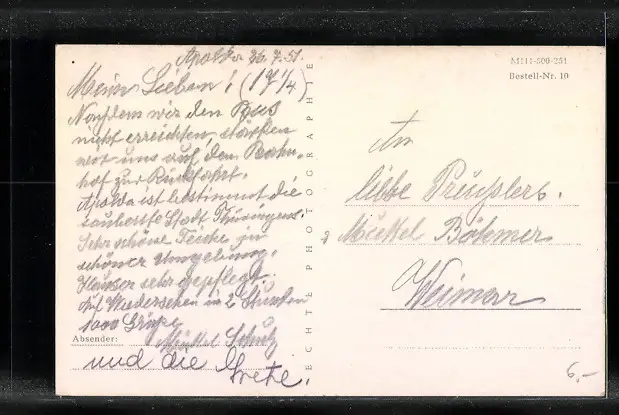 Apolda 26.7.51.
Mein Lieben! (17 1/4)
Nachdem wir den Bus
nicht erreichten, stürzten
wir uns auf den Bahn-
hof zur Rückfahrt.
Apolda ist bestimmt die
sauberste Stadt Thüringens.
Sehr schöne Teiche in
schöner Umgebung.
Häuser sehr gepflegt.
Auf Wiedersehen in 2 Stunden
1000 Grüße
Absender:
und die Grete.
ECHTE PHOTOGRAPHIE
M111-500-251
Bestell-Nr. 10
An
liebe Preußlers.
Böhmer
Weimar
6,-